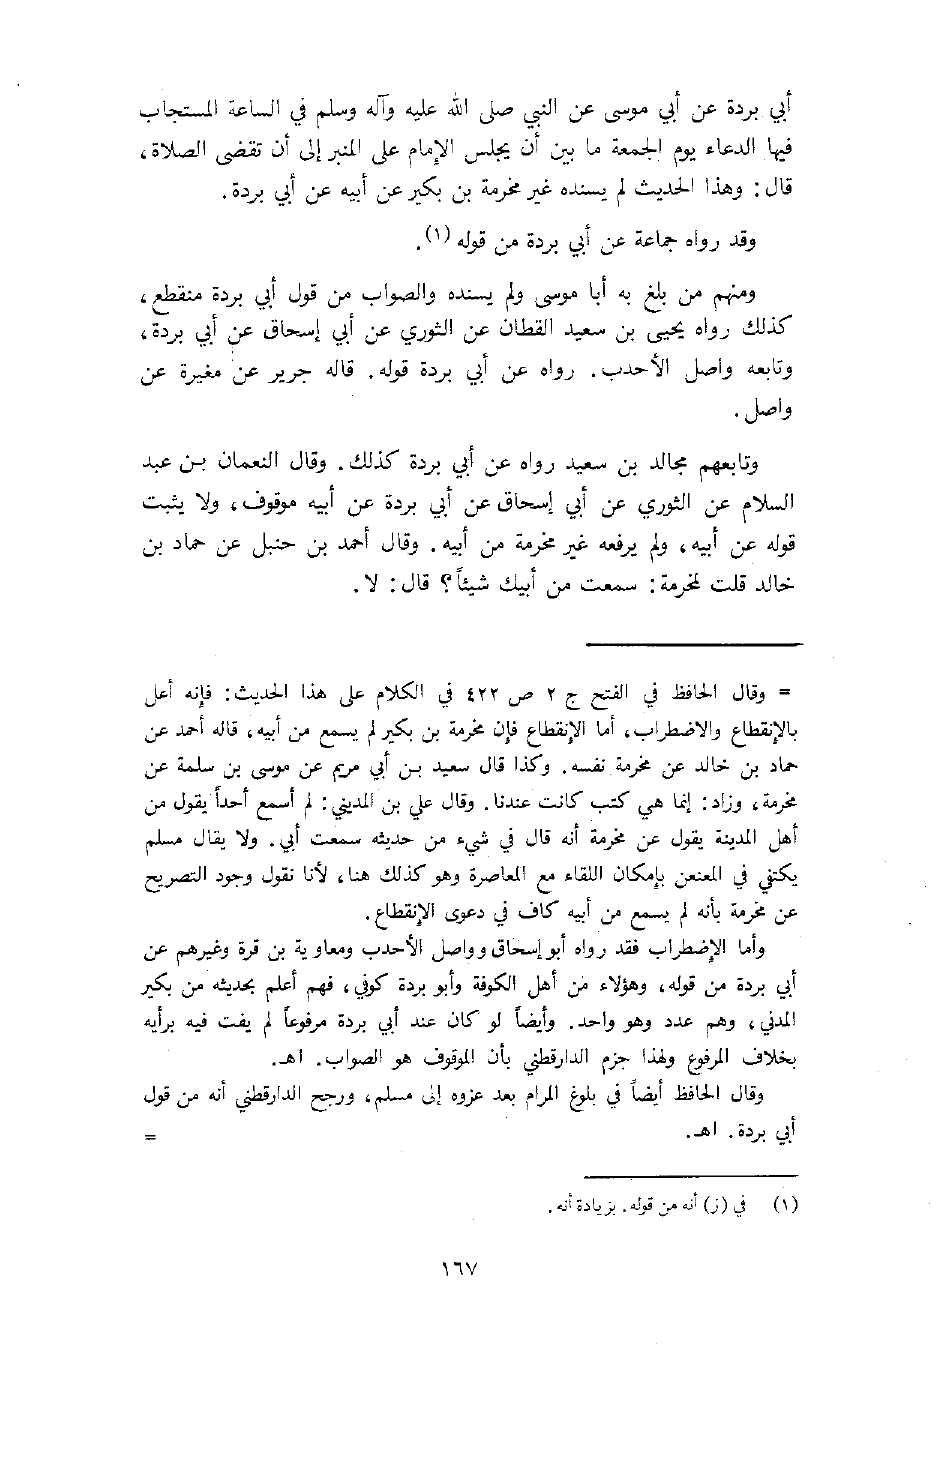 أبي بردة عن أبي موسى عن النبي صلى الله عليه وآله وسلم في الساعة المستجاب
فيها الدعاء يوم الجمعة ما بين أن يجلس الإمام على المنبر إلى أن تقضى الصلاة،
قال: وهذا الحديث لم يسنده غير مخرمة بن بكير عن أبيه عن أبي بردة.
وقد رواه جماعة عن أبي بردة من قوله (١).
ومنهم من بلغ به أبا موسى ولم يسنده والصواب من قول أبي بردة منقطع،
كذلك رواه يحيى بن سعيد القطان عن الثوري عن أبي إسحاق عن أبي بردة،
وتابعه واصل الأحدب. رواه عن أبي بردة قوله. قاله جرير عن مغيرة عن
واصل.
وتابعهم مجالد بن سعيد رواه عن أبي بردة كذلك. وقال النعمان بن عبد
السلام عن الثوري عن أبي إسحاق عن أبي بردة عن أبيه موقوف، ولا يثبت
قوله عن أبيه، ولم يرفعه غير مخرمة من أبيه. وقال أحمد بن حنبل عن حماد بن
خالد قلت لمخرمة: سمعت من أبيك شيئاً؟ قال: لا.
= وقال الحافظ في الفتح ج ٢ ص ٤٢٢ في الكلام على هذا الحديث: فإنه أعل
بالإنقطاع والاضطراب، أما الإنقطاع فإن مخرمة بن بكير لم يسمع من أبيه، قاله أحمد عن
حماد بن خالد عن مخرمة نفسه. وكذا قال سعيد بن أبي مريم عن موسى بن سلمة عن
مخرمة، وزاد: إنما هي كتب كانت عندنا. وقال علي بن المديني: لم أسمع أحداً يقول من
أهل المدينة يقول عن مخرمة أنه قال في شيء من حديثه سمعت أبي. ولا يقال مسلم
يكتفي في المعنعن بإمكان اللقاء مع المعاصرة وهو كذلك هنا، لأنا نقول وجود التصريح
عن مخرمة بأنه لم يسمع من أبيه كاف في دعوى الإنقطاع.
وأما الإضطراب فقد رواه أبو إسحاق وواصل الأحدب ومعاوية بن قرة وغيرهم عن
أبي بردة من قوله، وهؤلاء من أهل الكوفة وأبو بردة كوفي، فهم أعلم بحديثه من بكير
المدني، وهم عدد وهو واحد. وأيضاً لو كان عند أبي بردة مرفوعاً لم يفت فيه برأيه
بخلاف المرفوع ولهذا جزم الدارقطني بأن الموقوف هو الصواب. اهـ.
وقال الحافظ أيضاً في بلوغ المرام بعد عزوه إلى مسلم، ورجح الدارقطني أنه من قول
أبي بردة. اهـ. =
(١) في (ز) أنه من قوله. بزيادة أنه.
١٦٧